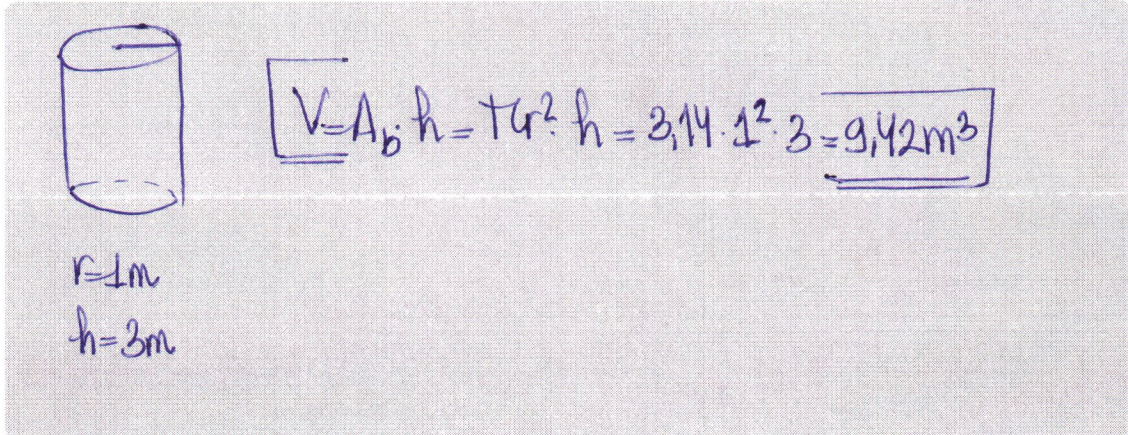 V=A_b·h=πr²·h=3,14·1²·3=9,42m³
r=1m
h=3m